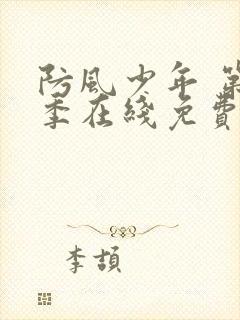 防風少年 第
季在綫免費
李頡